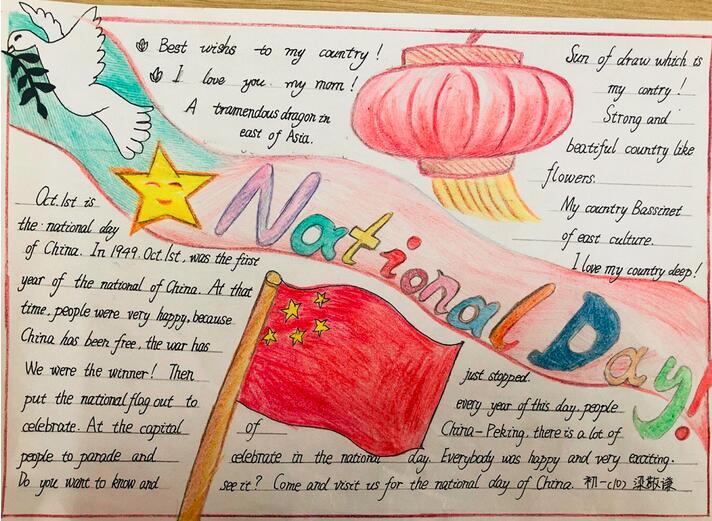 Best wishes to my country!
I love you my mom!
A tramendous dragon in
east of Asia.
Sun of draw which is
my contry!
Strong and
beatiful country like
flowers.
My country Bassinet
of east culture.
I love my country deep!
National Day!
Oct.1st is
the national day
of China. In 1949.Oct.1st, was the first
year of the national of China. At that
time, people were very happy, because
China has been free, the war has
just stopped.
We were the winner! Then
every year of this day, people
put the national flag out to
celebrate. At the capital of China-Peking, there is a lot of
people to parade and celebrate in the national day. Everybody was happy and very exciting.
Do you want to know and see it? Come and visit us for the national day of China. 初一(10) 梁敬谦